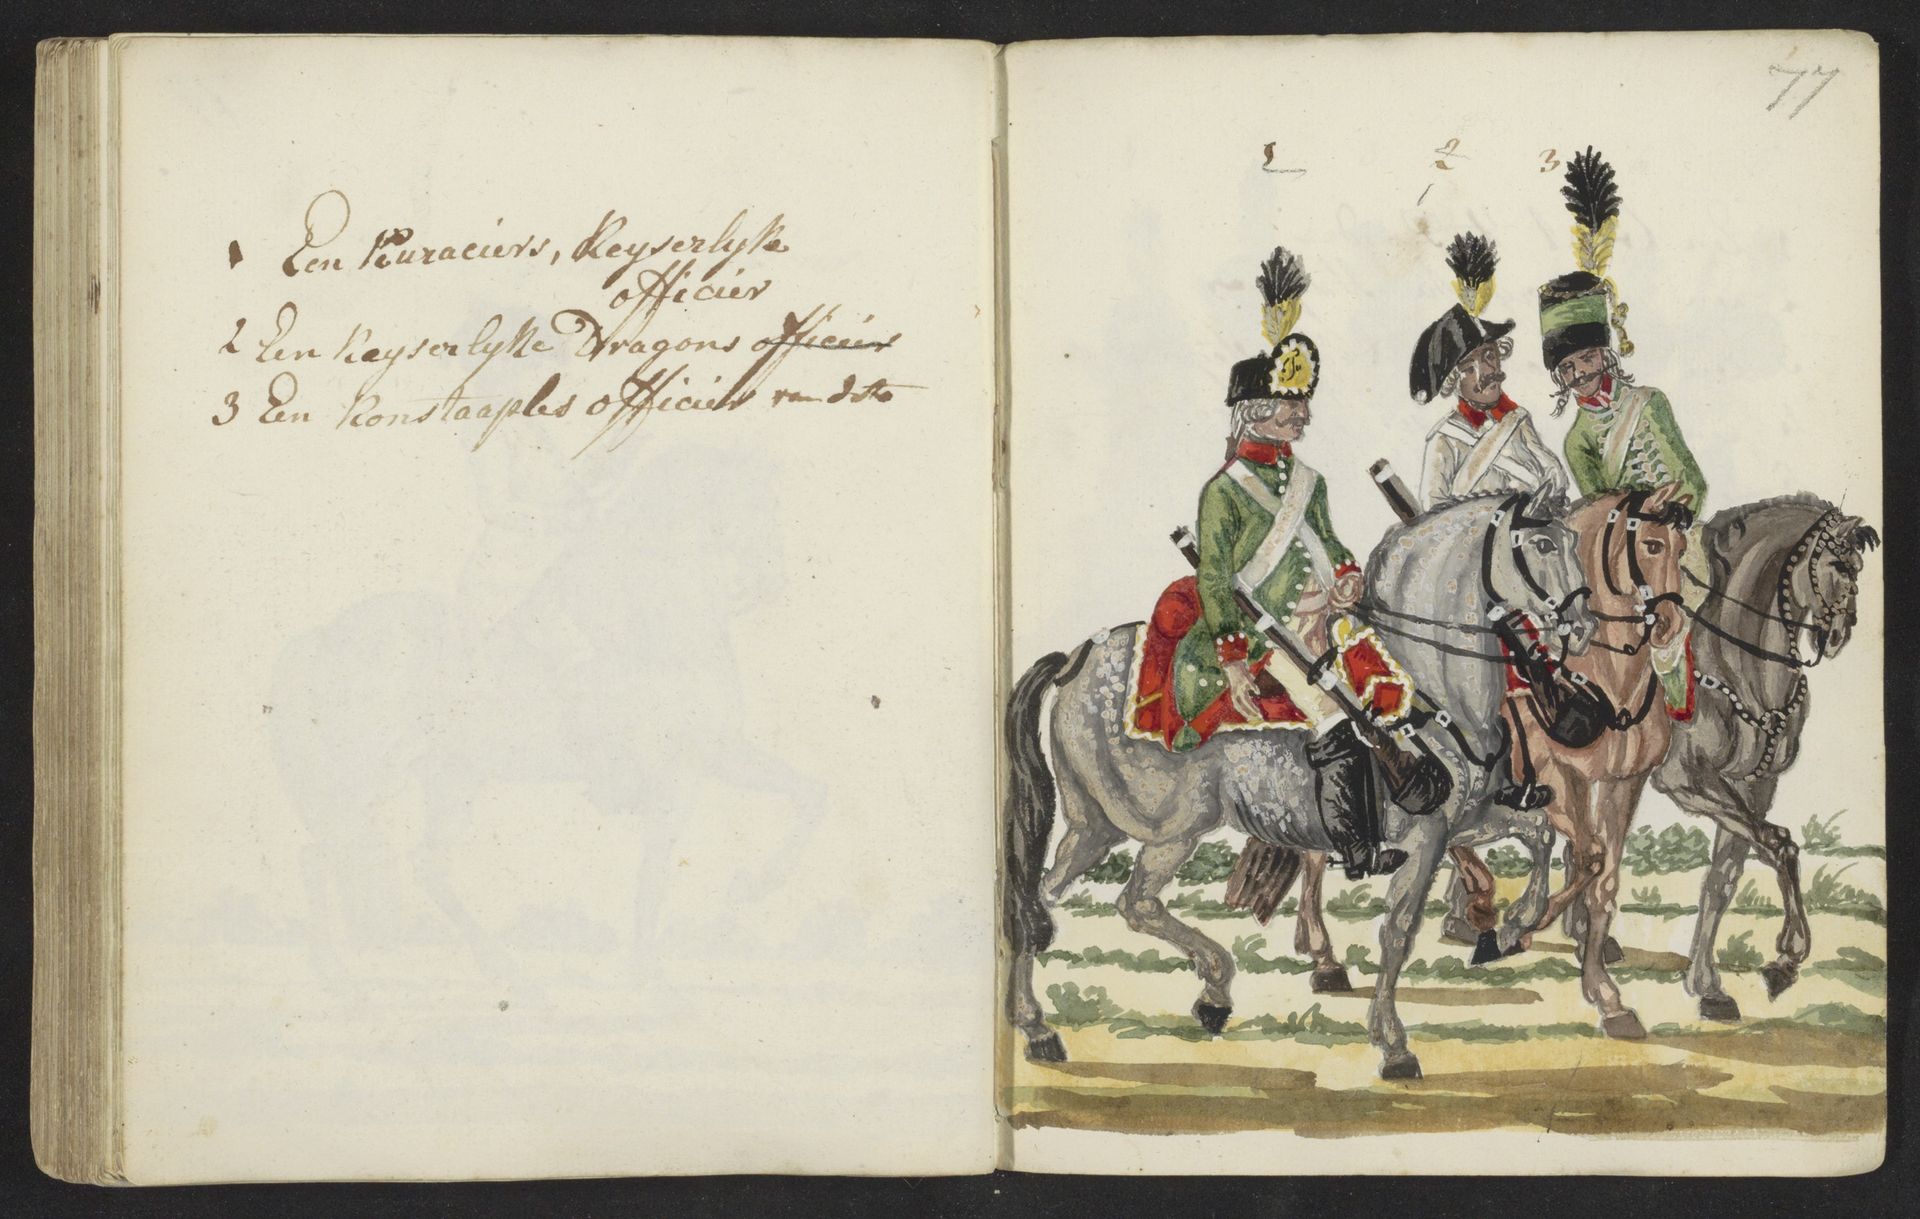 1 Een Kuraciers, Keyserlyke
officier
2 Een Keyserlyke Dragons officier
3 Een Konstaaples officier van dito
77
1 2 3